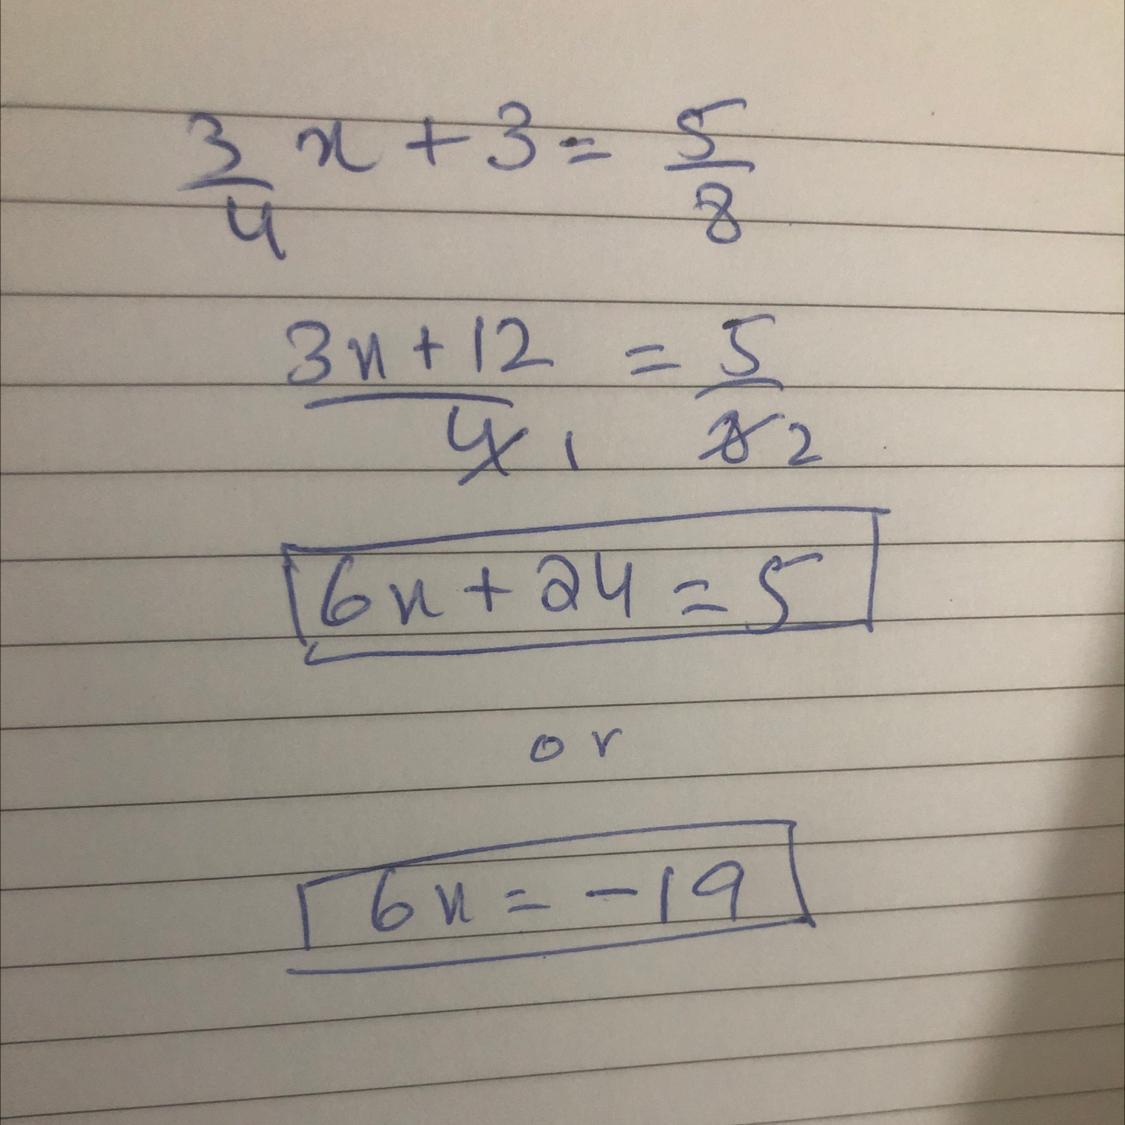 3/4 x + 3 = 5/8
3x + 12 / 4 1 = 5 / 8 2
6x + 24 = 5
or
6x = -19